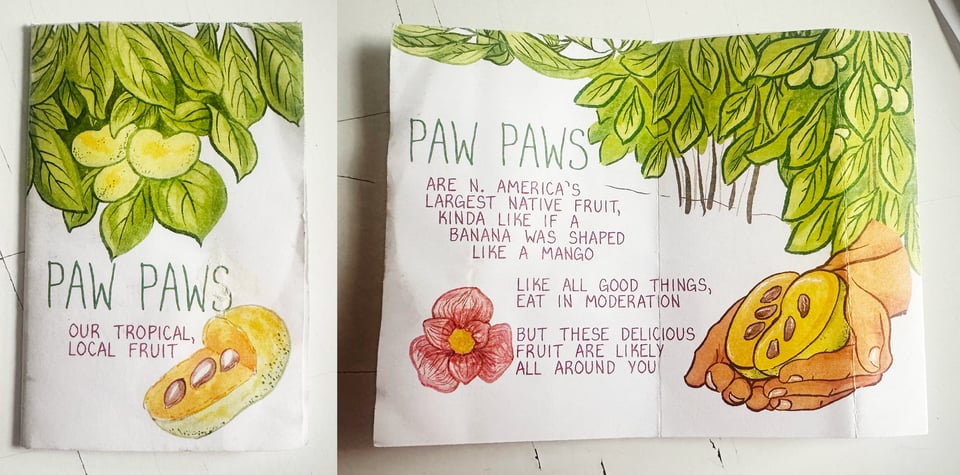 PAW PAWS
OUR TROPICAL,
LOCAL FRUIT
PAW PAWS
ARE N. AMERICA'S
LARGEST NATIVE FRUIT,
KINDA LIKE IF A
BANANA WAS SHAPED
LIKE A MANGO
LIKE ALL GOOD THINGS,
EAT IN MODERATION
BUT THESE DELICIOUS
FRUIT ARE LIKELY
ALL AROUND YOU